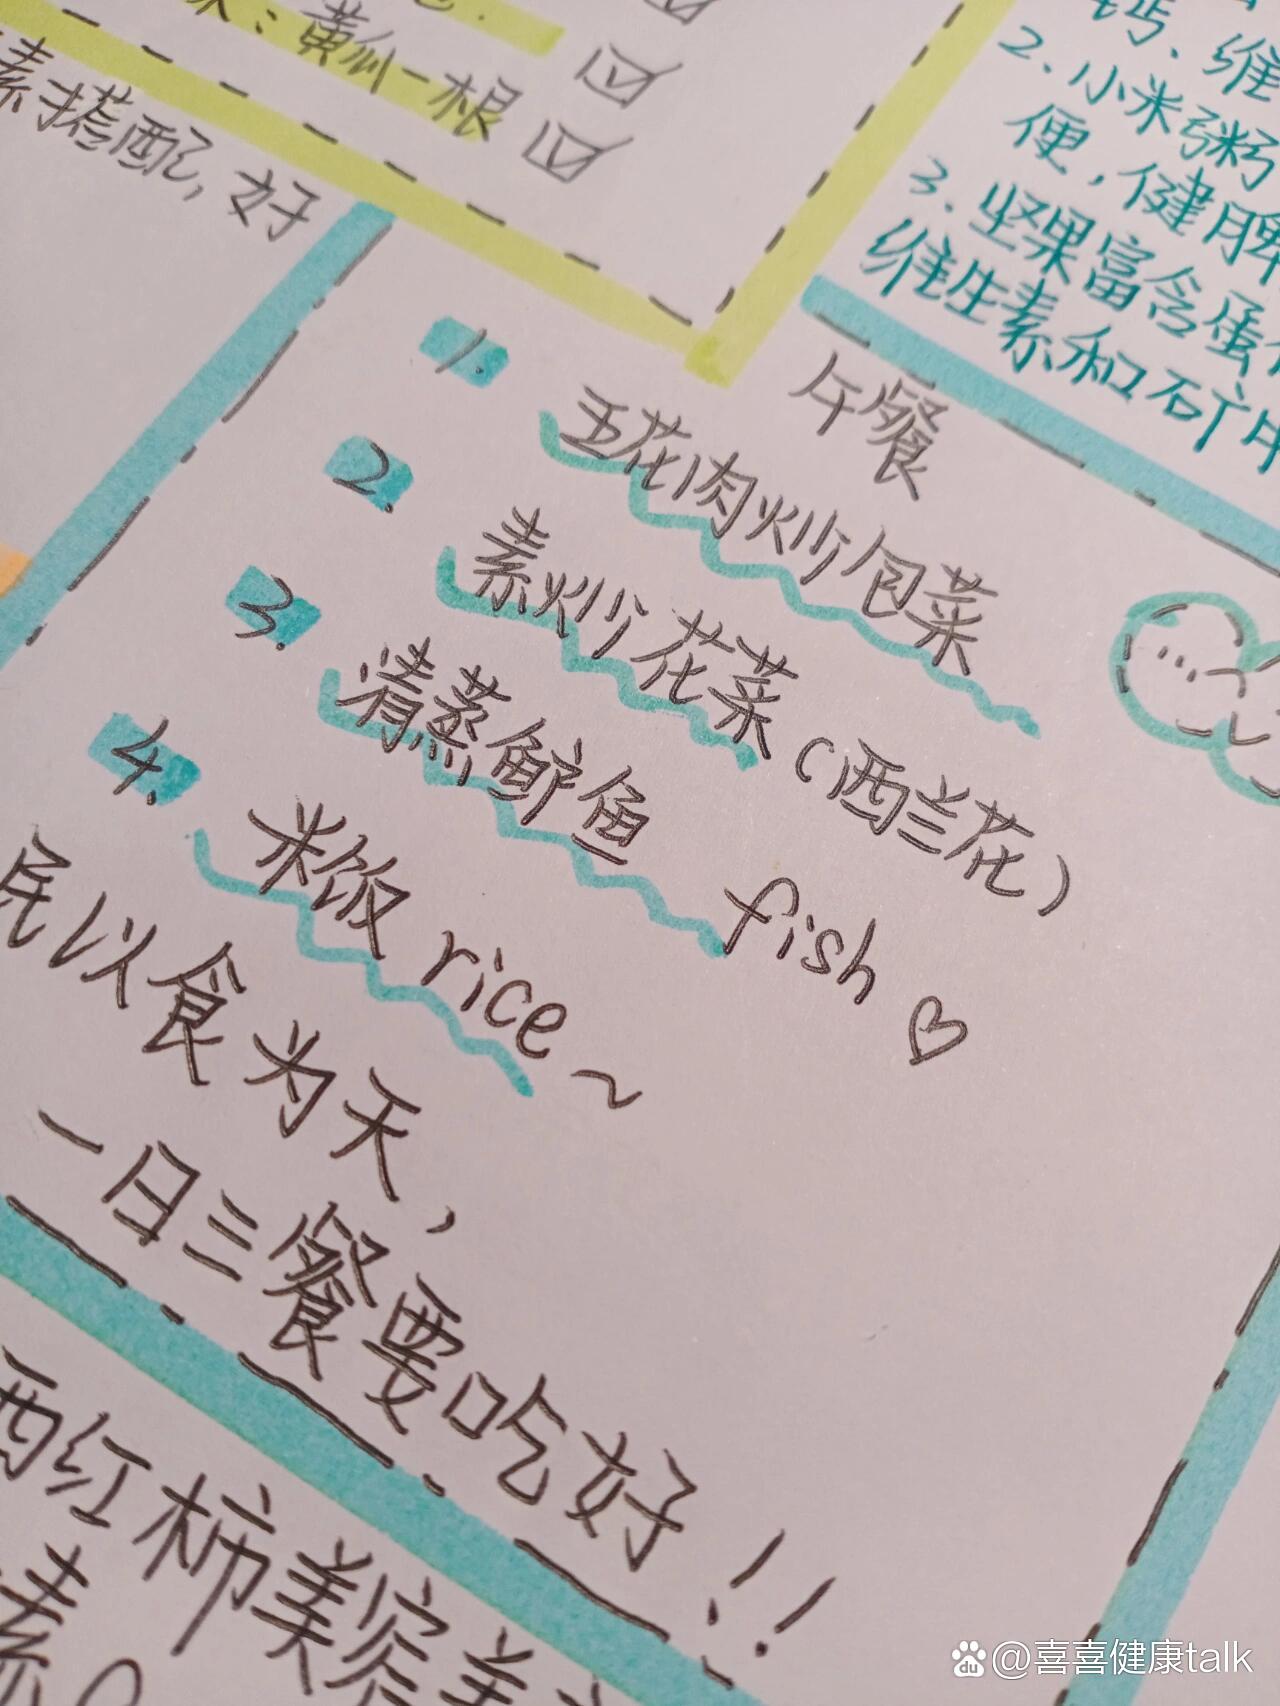 黄瓜一根
素搭配，好
钙、维
2.小米粥
便，健脾
3.坚果富含蛋
维生素和矿
午餐
1.五花肉炒包菜
2.素炒花菜（西兰花）
3.清蒸鲈鱼 fish♡
4.米饭 rice~
民以食为天，
一日三餐要吃好！！
西红柿美容美
素。
@喜喜健康talk